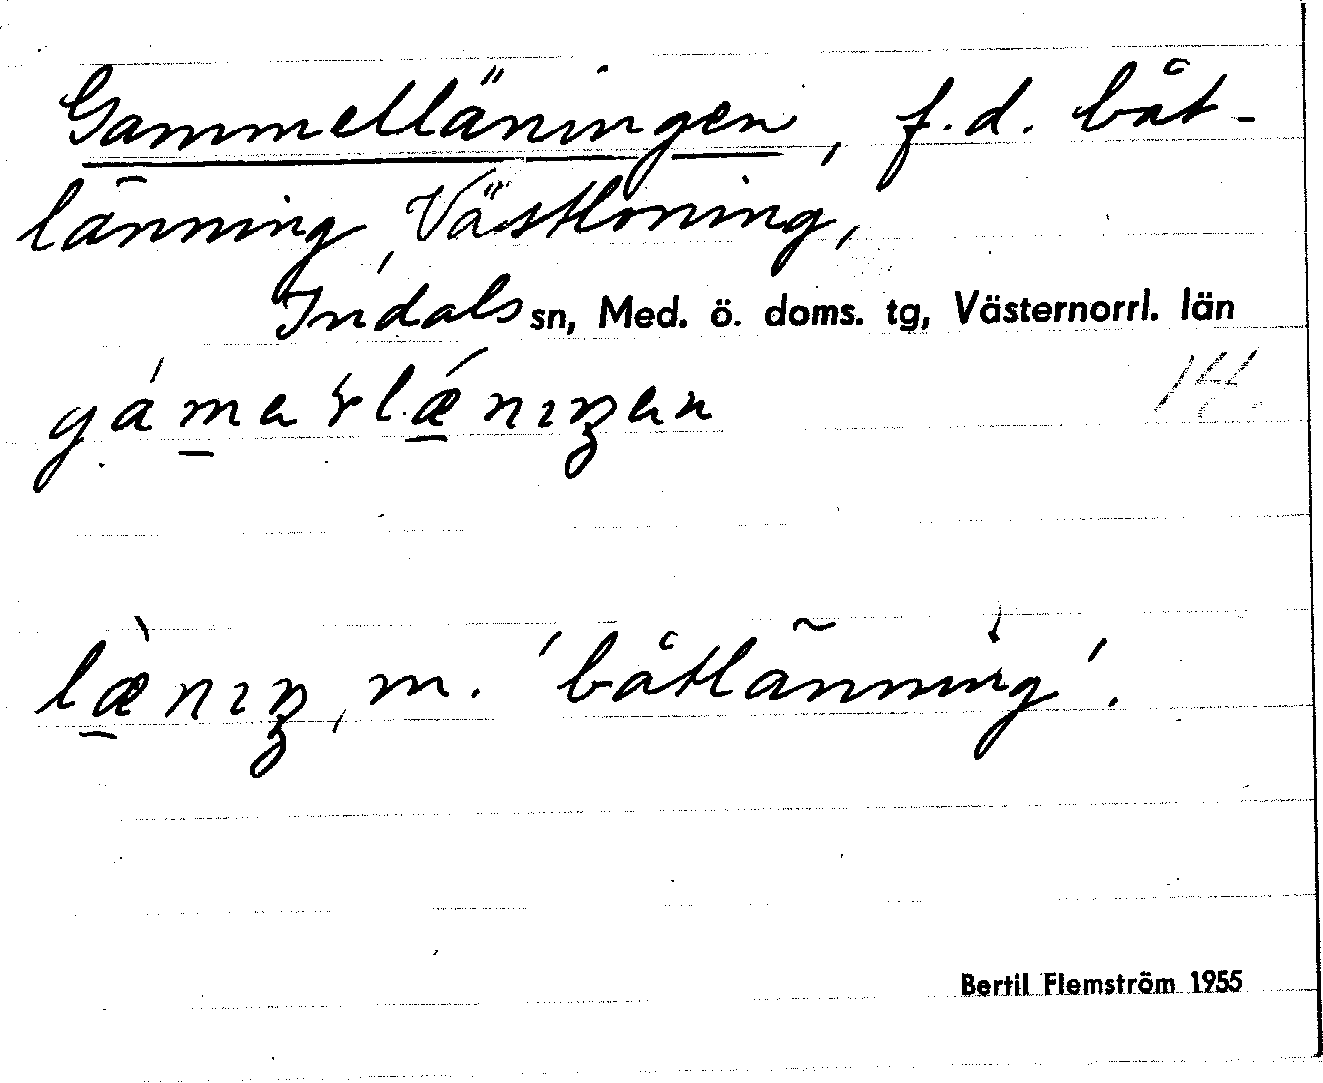 Gammelläningen, f.d. båt-
länning, Västloning,
Indals sn, Med. ö. doms. tg, Västernorrl. län
14.
m. 'båtlänning'.
Bertil Flemström 1955